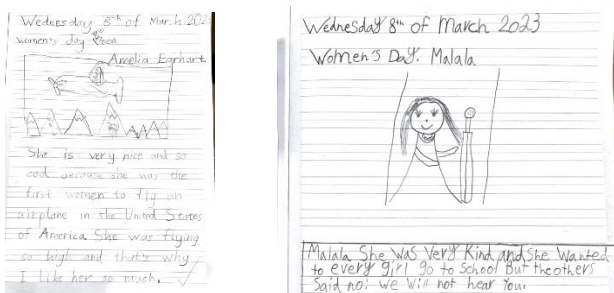 Wednesday 8th of March 202
women's day
Amelia Earhart
She is very nice and so
cool because she was the
first women to fly an
airplane in the United States
of America She was flying
so high and that's why
I like her so much.
Wednesday 8th of March 2023
Women's Day. Malala
Malala She was very Kind and She Wanted
to every girl go to School But the others
Said no! we will not hear You!